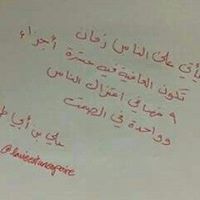 يأتي على الناس زمان
تكون العافية فيه عشرة أجزاء
٩ منها في اعتزال الناس
وواحدة في الصمت
علي بن أبي ط